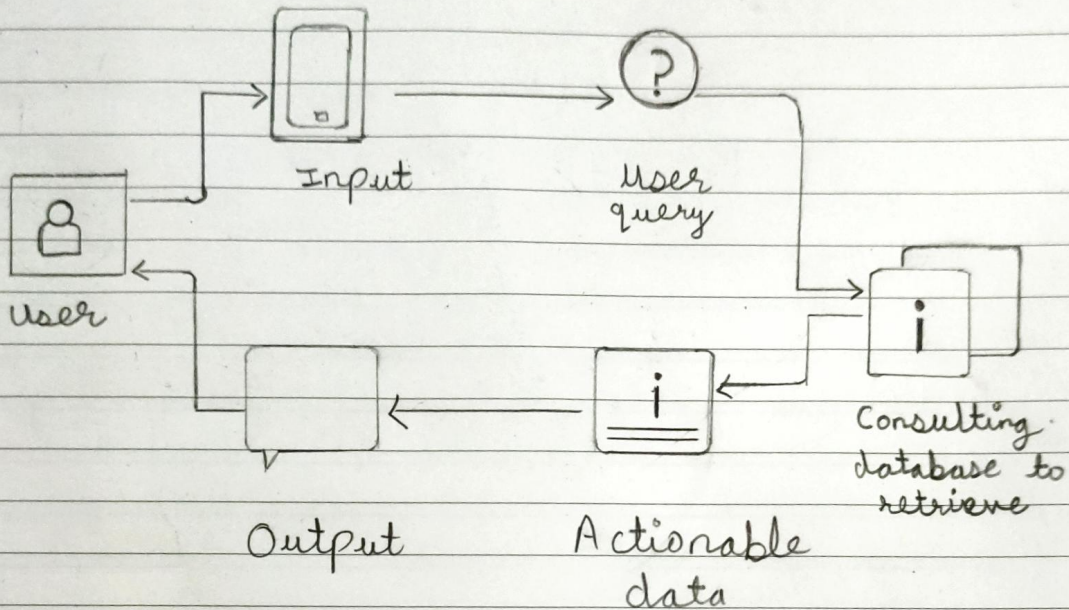 ?
Input
User
query
User
i
i
Consulting
database to
retrieve
Output
Actionable
data